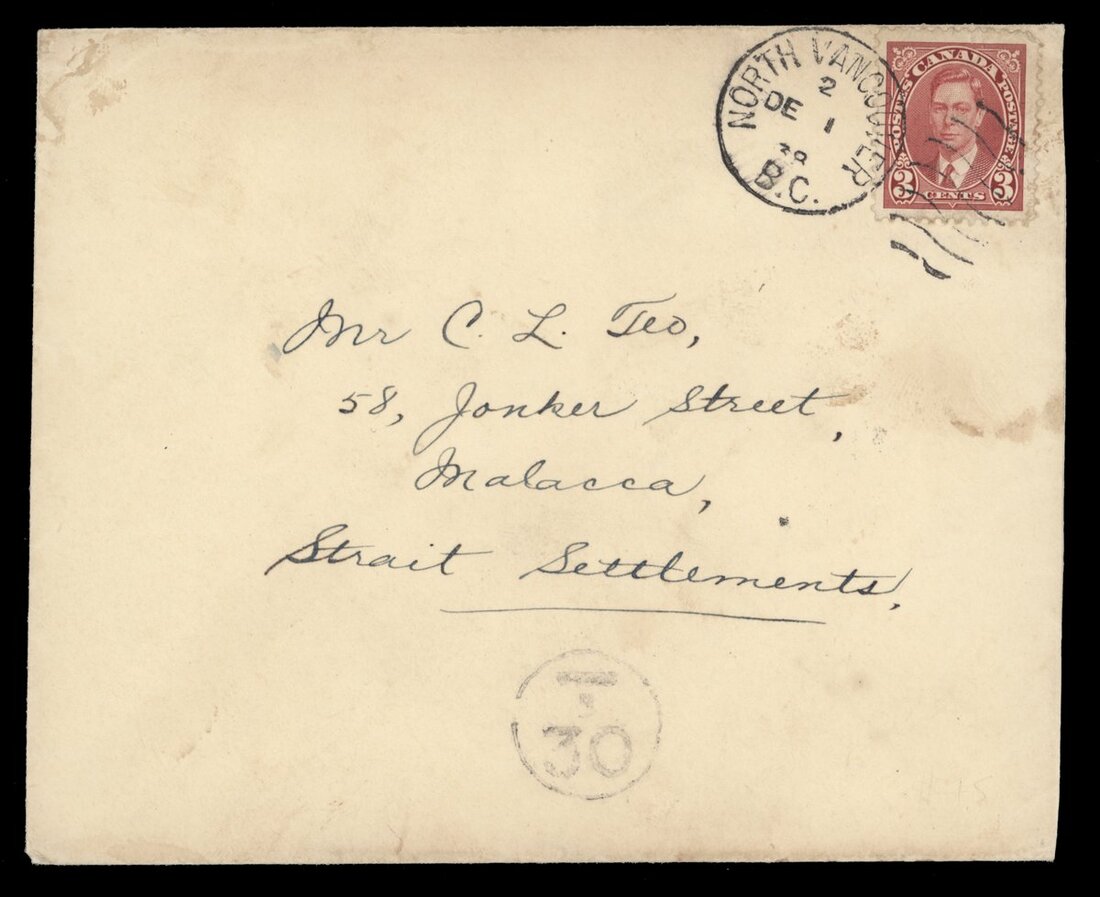 NORTH VANCOUVER
2
DE 1
38
B.C.
CANADA
POSTES POSTAGE
3 CENTS 3
Mr C. L. Teo,
58, Jonker Street,
Malacca,
Strait Settlements,
T
30